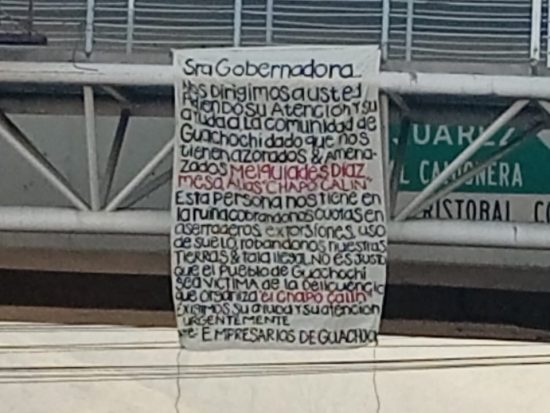 Sra Gobernadora
Nos Dirigimos a usted
Pidiendo su Atención Y su
ayuda a la comunidad de
Guachochi dado que nos
tienen azorados & Amena-
zados Melquiades Diaz
mesa Alias "CHAPO CALIN"
Esta Persona nos tiene en
la ruina cobrandonos cuotas en
aserraderos, extorsiones, uso
de suelo, robandonos nuestras
Tierras & tala ilegal. NO es Justo
que el Pueblo de Guachochi
sea VICTIMA de la Delicuencia
que organiza "el Chapo Calin"
EXigimos su ayuda y su atención
URGENTEMENTE
EMPRESARIOS DE GUACHOCHI
JUAREZ
CAMIONERA
CRISTOBAL CO